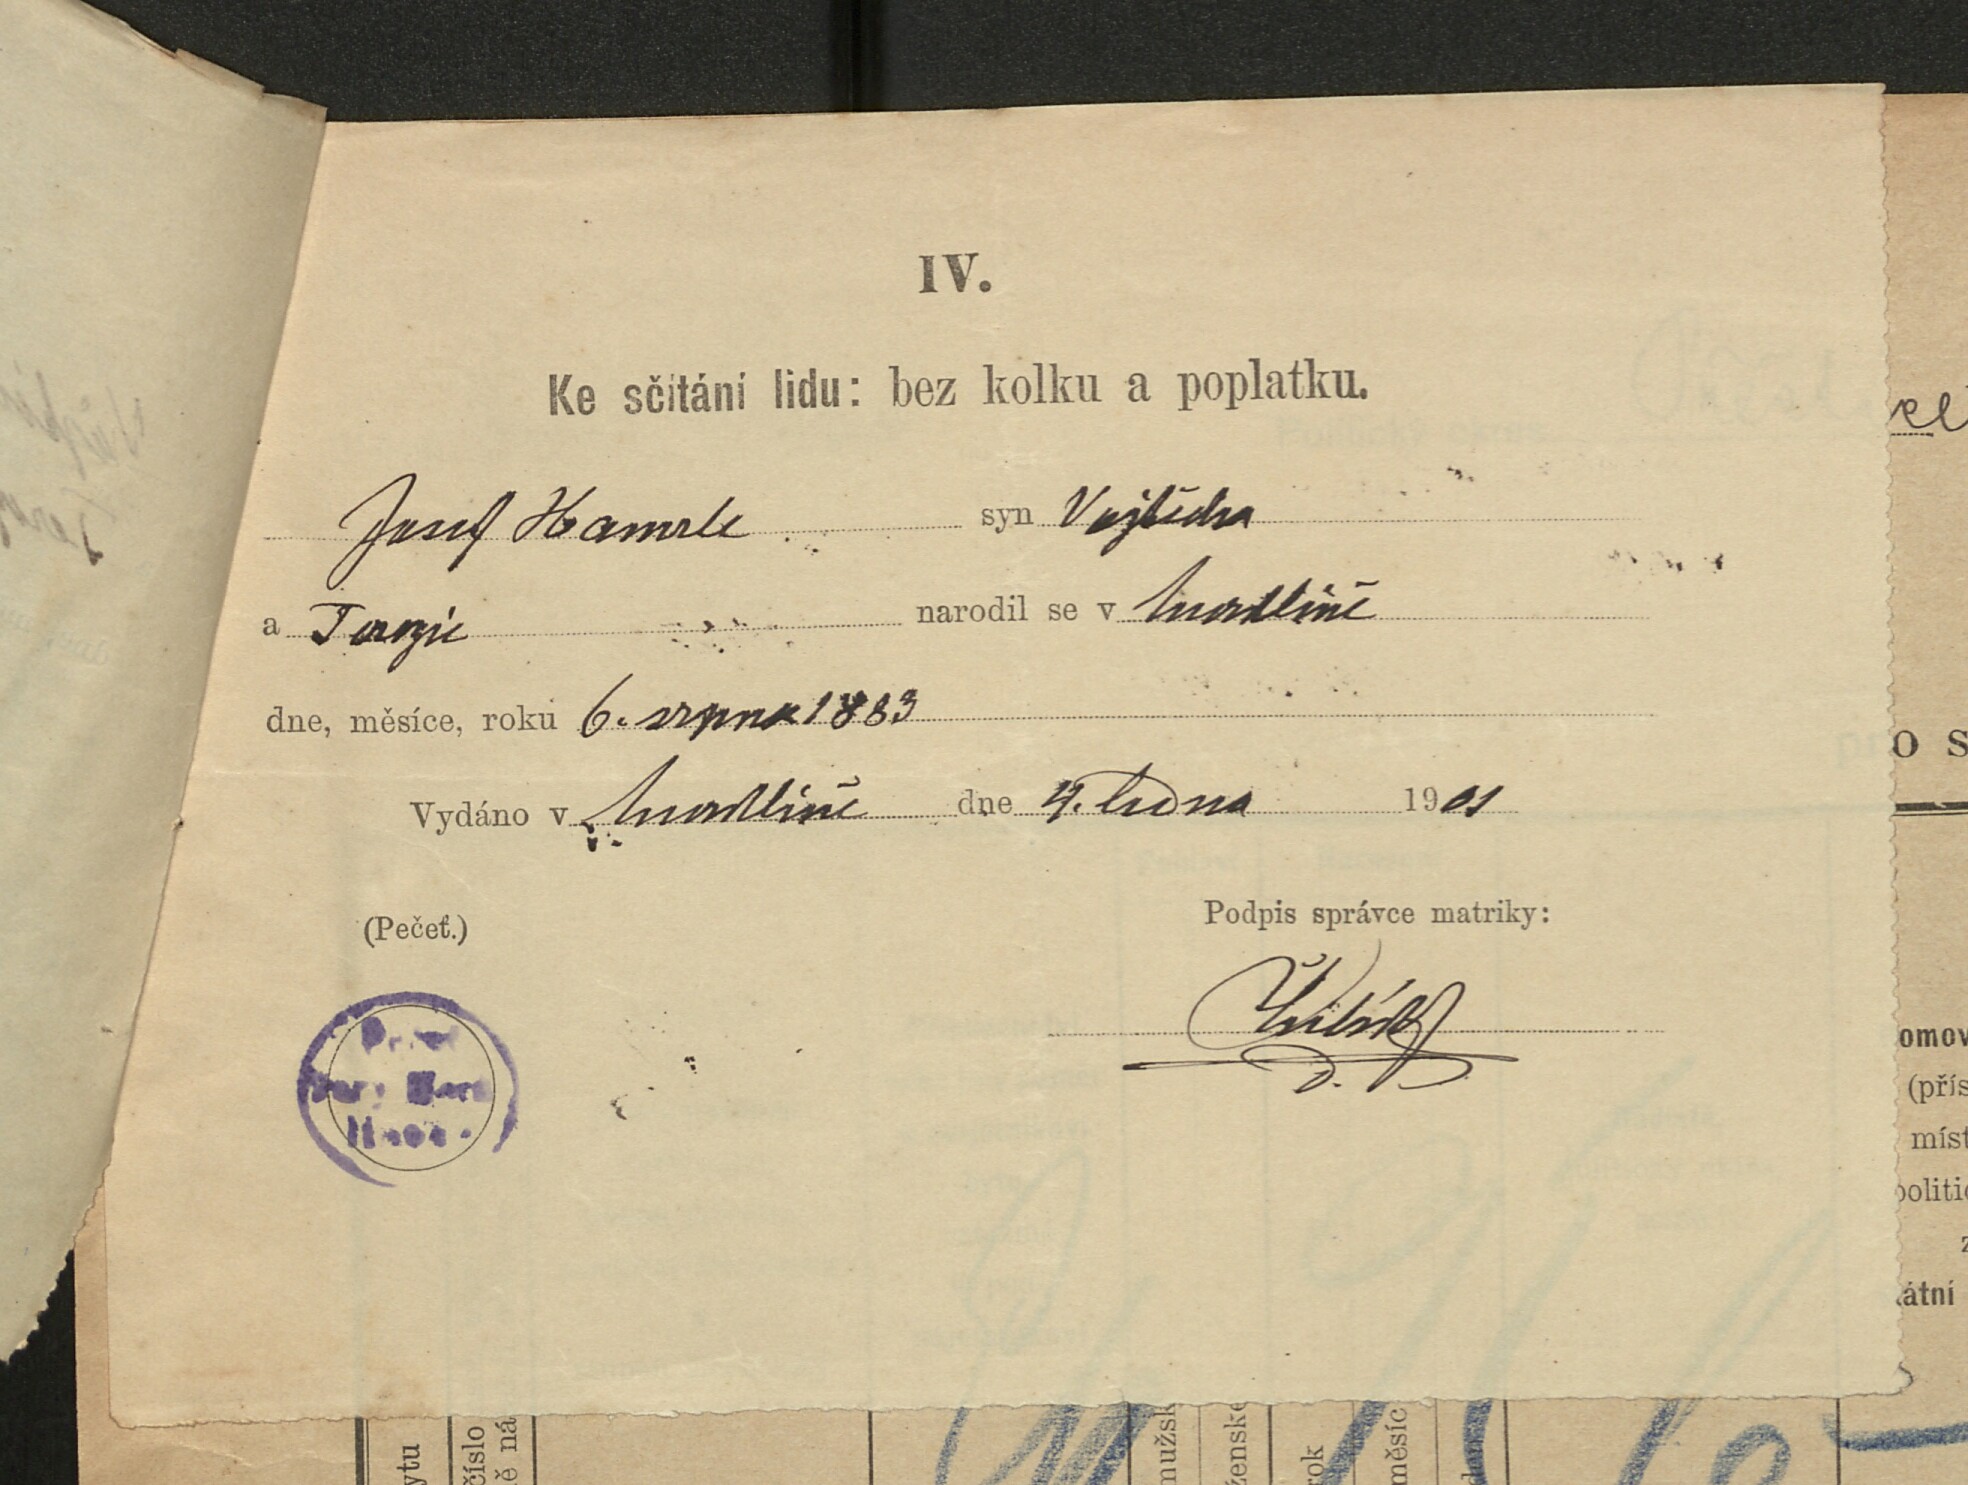 IV.
Ke sčítání lidu: bez kolku a poplatku.
Josef Hamrle syn Vojtěcha
a Terezie narodil se v
dne, měsíce, roku 6. srpna 1883
Vydáno v dne 4. ledna 1901
(Pečeť.) Podpis správce matriky:
vel
o s
omov
(přís
míst
politic
z
átní
ytu
číslo
ě ná
mužsk
ženské
rok
měsíc
den